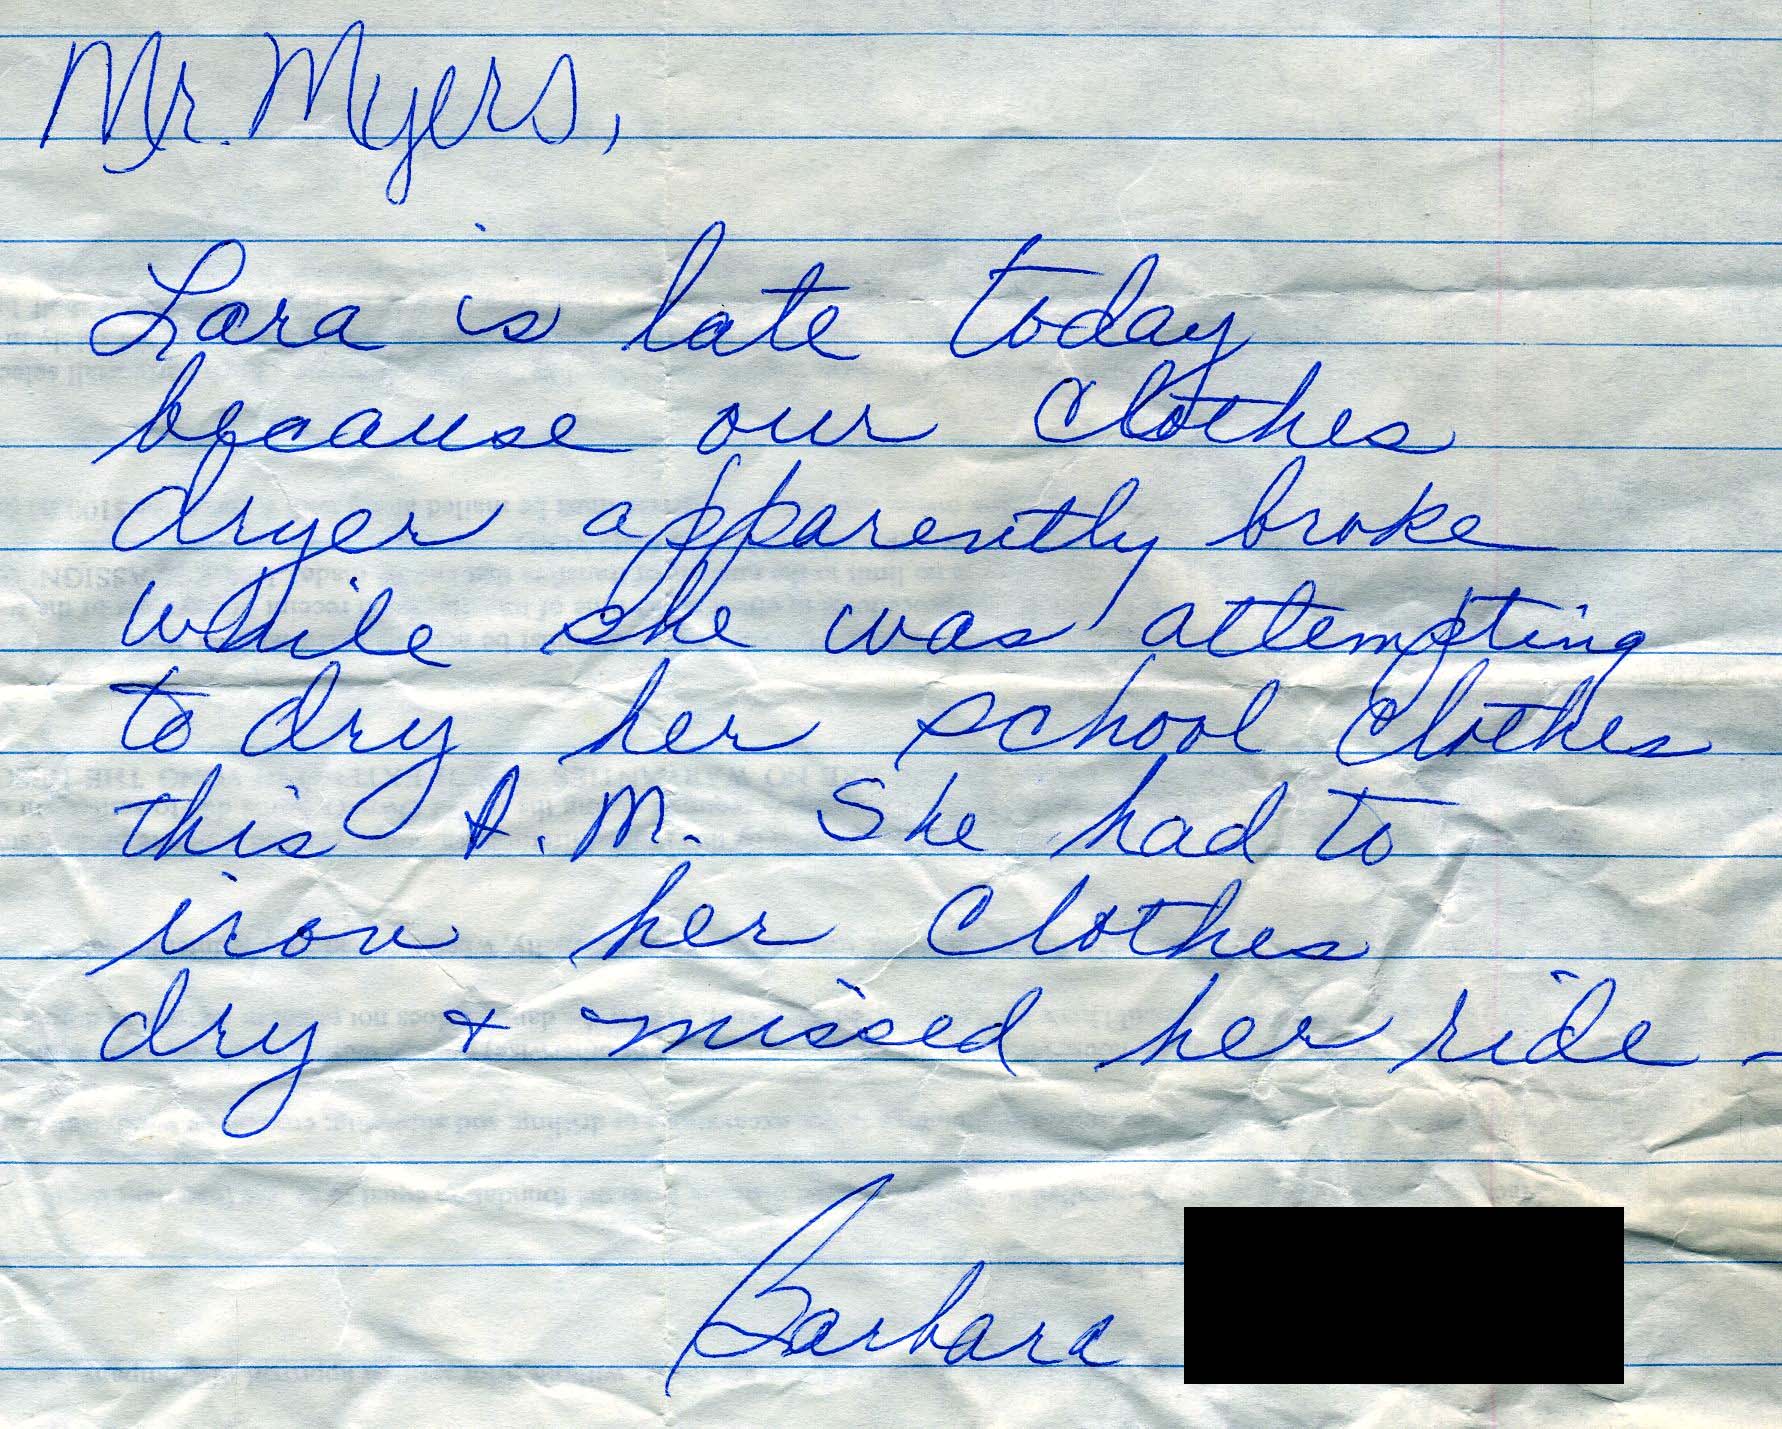 Mr. Myers,
Lara is late today
because our clothes
dryer apparently broke
while she was attempting
to dry her school clothes
this A.M. She had to
iron her clothes
dry + missed her ride -
Barbara